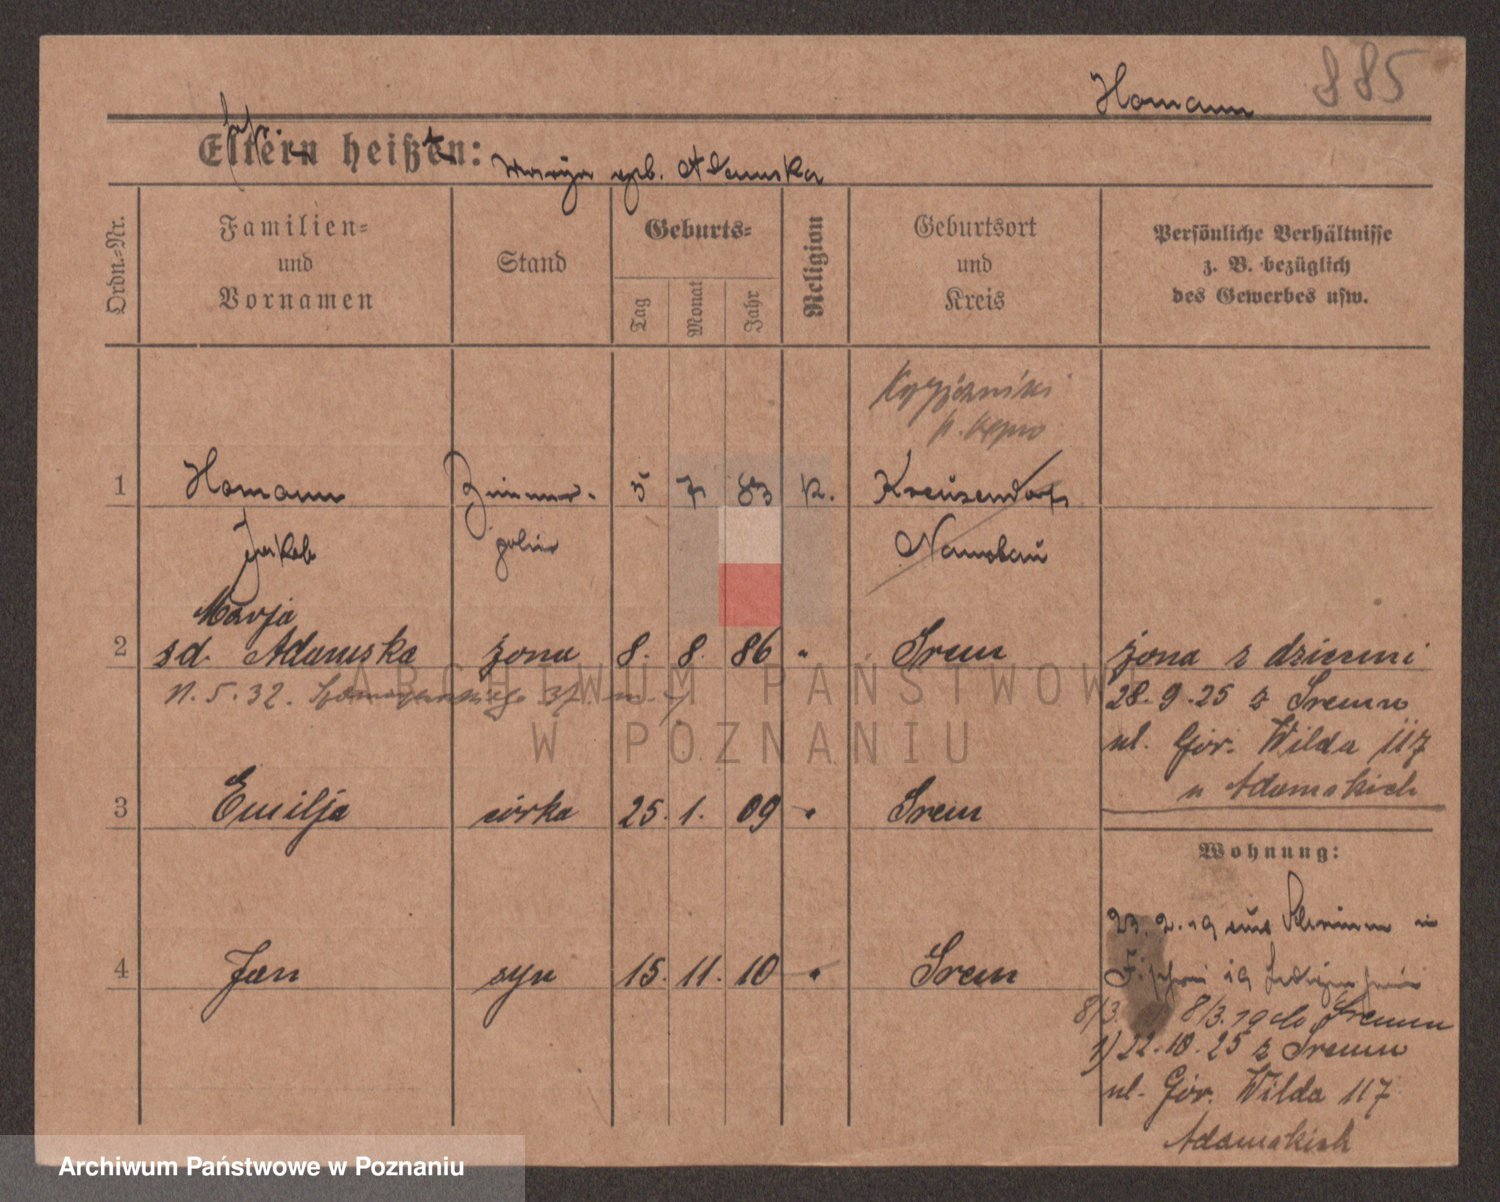 885
Homann
Eltern heißen:
Marya geb. Adamska
Ordn.-Nr.
Familien-
und
Vornamen
Stand
Geburts-
Tag
Monat
Jahr
Religion
Geburtsort
und
Kreis
Persönliche Verhältnisse
z. B. bezüglich
des Gewerbes usw.
p. Kępno
1 Homann Zimmer- 5 7 83 K. Kreuzendorf
Jakob Namslau
Marja
2 zd. Adamska żona 8. 8. 86 " Srem żona z dziećmi
11. 5. 32. 37 m. 28. 9. 25 z Sremu
ul. Gór. Wilda 117
u Adamskich
3 Emilja córka 25. 1. 09 " Srem
Wohnung:
23. 2. 19 aus Schrimm in
4 Jan syn 15. 11. 10 " Srem
19
8/3. 8/3. 19 do Sremu
1) 22. 10. 25 z Sremu
ul. Gór. Wilda 117
Adamskich
ARCHIWUM PAŃSTWOWE
W POZNANIU
Archiwum Państwowe w Poznaniu